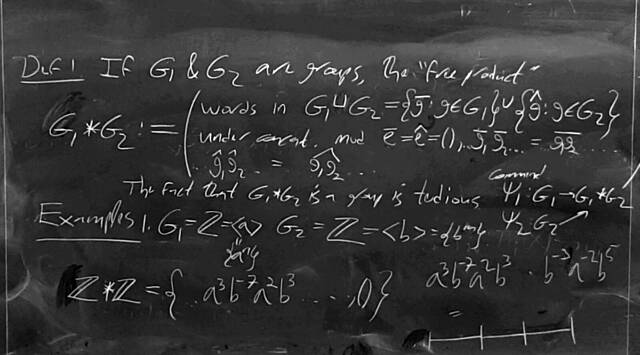 Def 1 If G₁ & G₂ are groups, the "free product"
G₁*G₂ := ( words in G₁⊔G₂ = {ḡ: g∈G₁}∪{ĝ: g∈G₂}
under concat. mod ē=ê=(), ..ḡ₁ḡ₂... = \overline{g₁g₂}
ĝ₁ĝ₂.. = \widehat{g₁g₂}...
The fact that G₁*G₂ is a group is tedious
ψ₁: G₁→G₁*G₂
ψ₂: G₂
Examples 1. G₁=ℤ=<a> G₂=ℤ=<b>={bᵐ}
{aⁿ}
ℤ*ℤ={ ..a³b⁻⁷a²b³ ....,()}
a³b⁻⁷a²b³ · b⁻³a⁻²b⁵
=